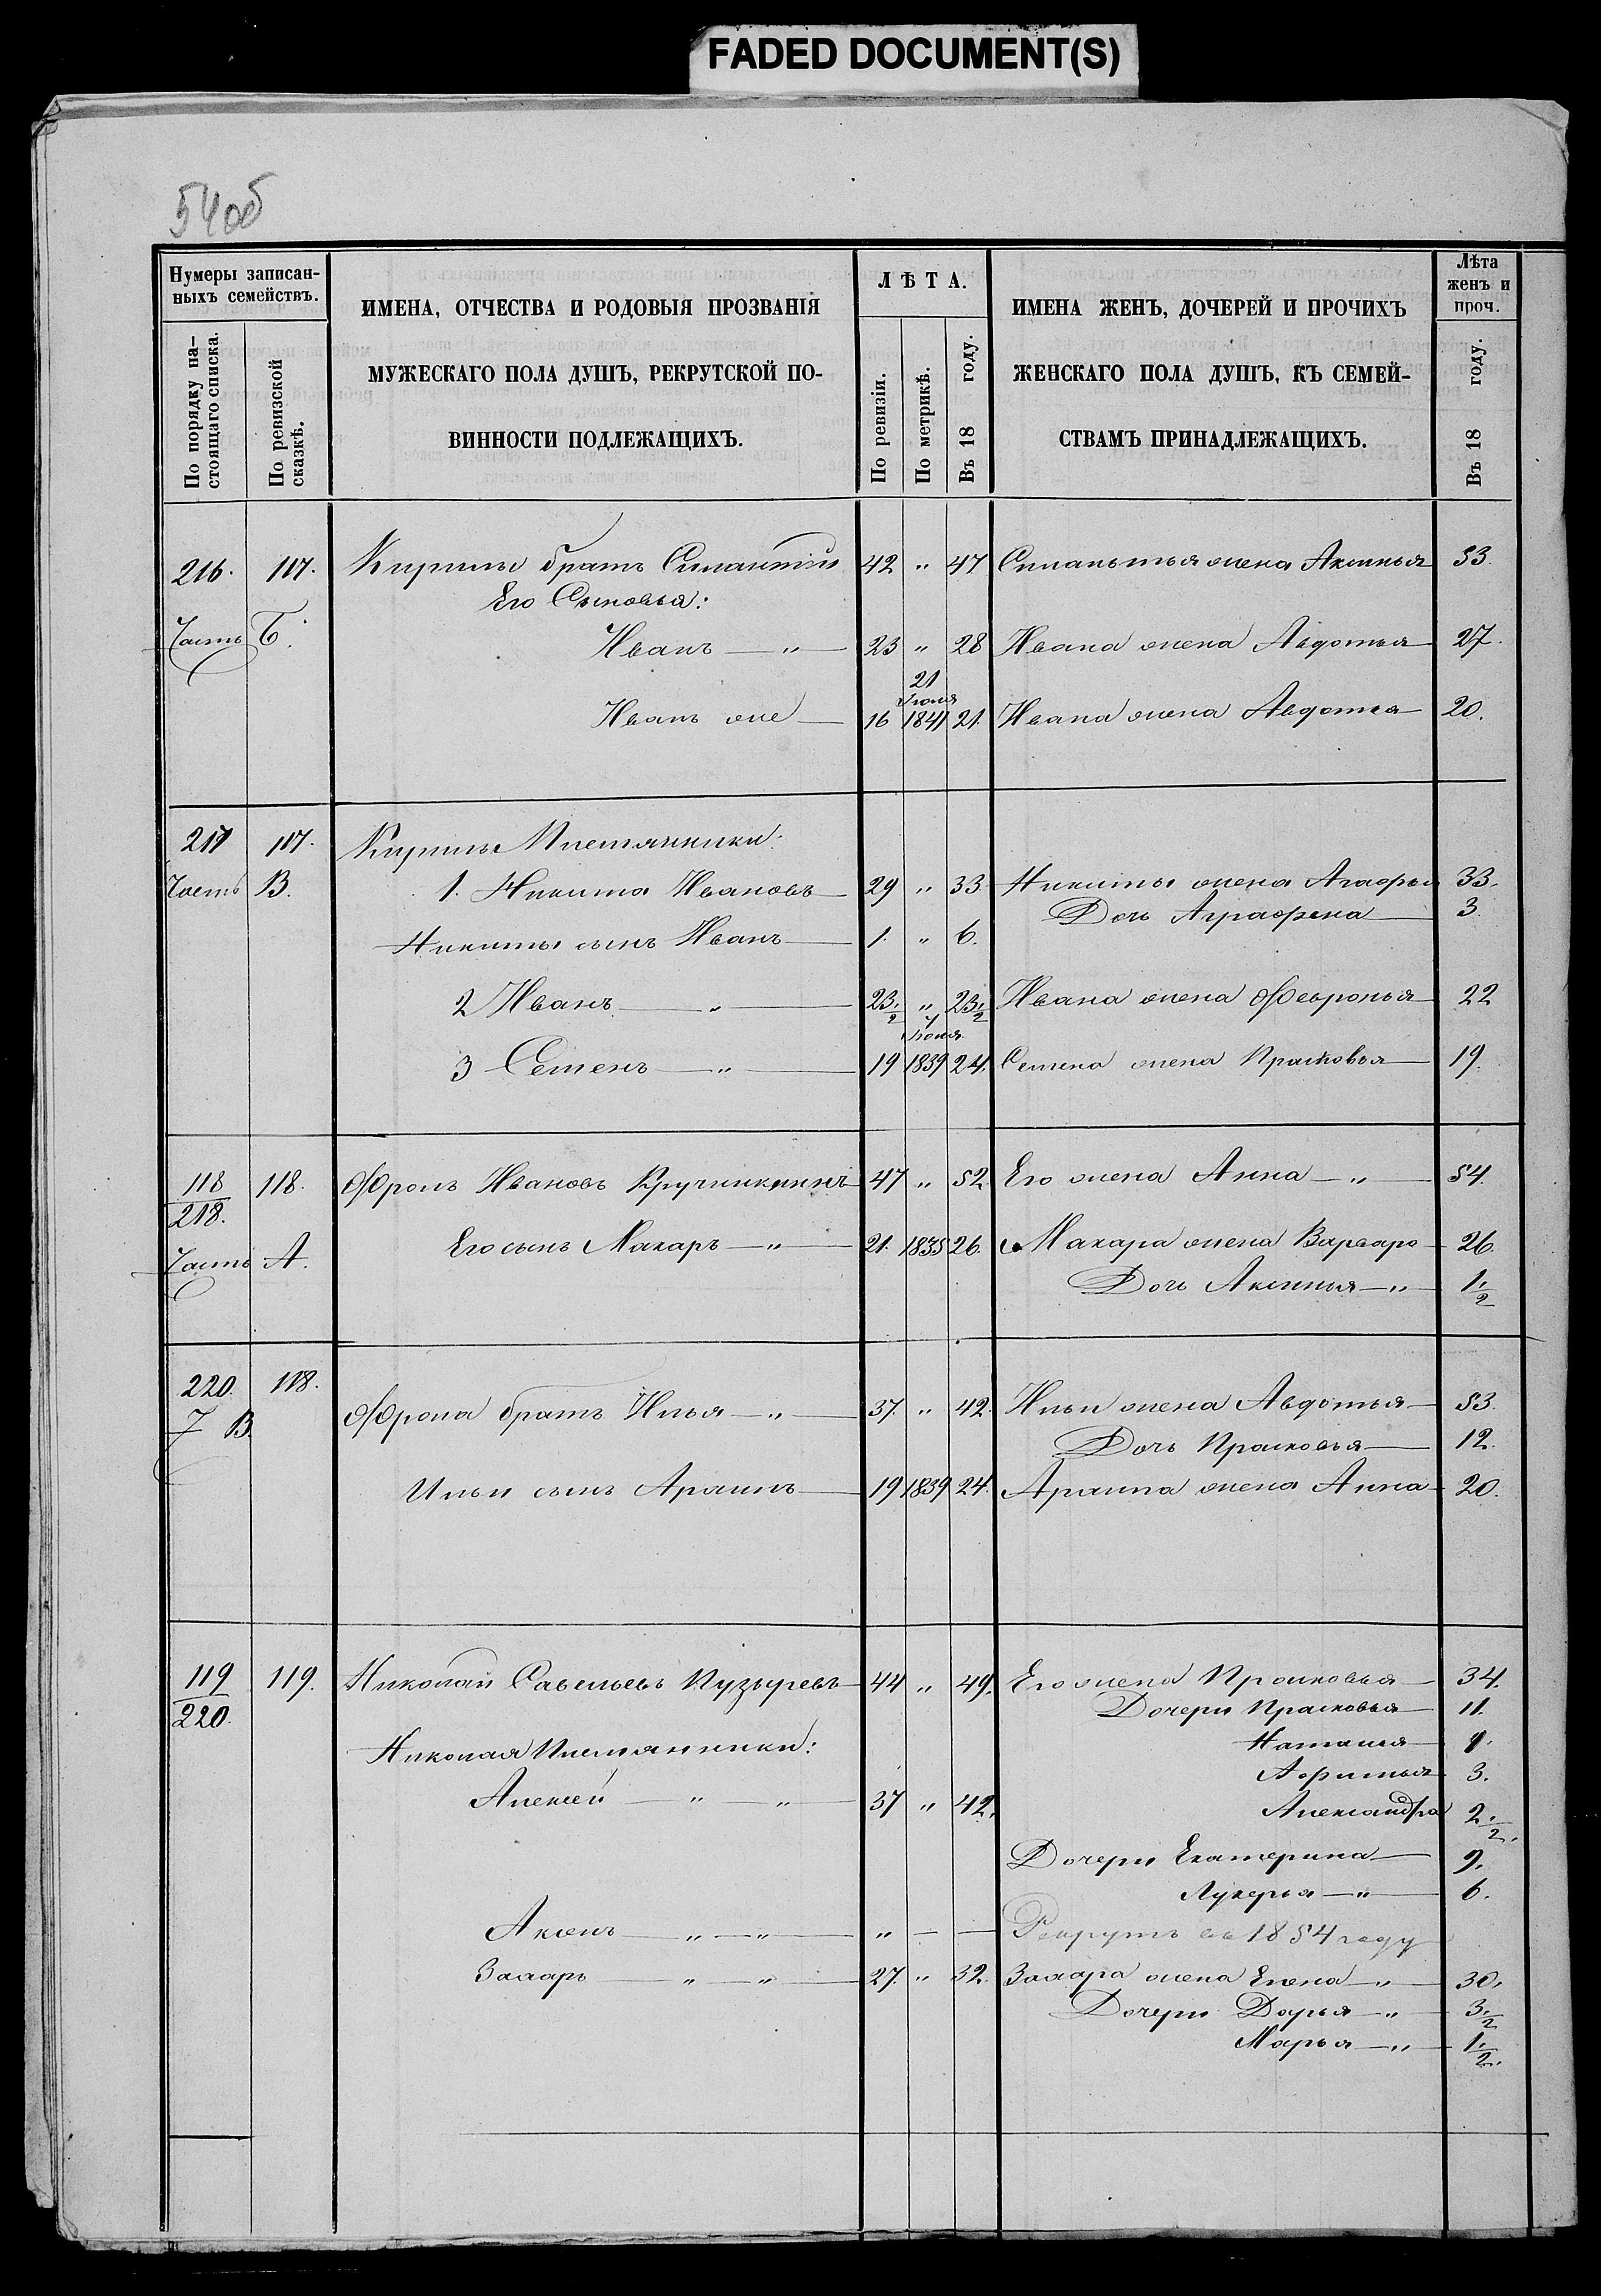 FADED DOCUMENT(S)
54об
Нумеры записан-
ныхъ семействъ.
По порядку на-
стоящаго списка.
По ревизской
сказкѣ.
ИМЕНА, ОТЧЕСТВА И РОДОВЫЯ ПРОЗВАНІЯ
МУЖЕСКАГО ПОЛА ДУШЪ, РЕКРУТСКОЙ ПО-
ВИННОСТИ ПОДЛЕЖАЩИХЪ.
ЛѢТА.
По ревизіи.
По метрикѣ.
Въ 18 году.
ИМЕНА ЖЕНЪ, ДОЧЕРЕЙ И ПРОЧИХЪ
ЖЕНСКАГО ПОЛА ДУШЪ, КЪ СЕМЕЙ-
СТВАМЪ ПРИНАДЛЕЖАЩИХЪ.
Лѣта
женъ и
проч.
Въ 18 году.
216. 117. Кирилы братъ Силантій 42 " 47 Силантья жена Аксинья 53.
Его Сыновья:
Часть Б. Иванъ — " — 23 " 28 Ивана жена Авдотья 27.
21
Іюля
Иванъ же — 16 1841 21. Ивана жена Авдотья 20.
217 117. Кирилы Племянники:
Часть В. 1. Никита Ивановъ — 29 " 33 Никиты жена Агафья 33.
Дочь Аграфена — 3
Никиты сынъ Иванъ — 1. " 6.
2 Иванъ — " — 23 1/2 " 23 1/2 Ивана жена Февронья 22
7
Іюня
3 Семенъ — " — 19 1839 24. Семена жена Прасковья — 19.
118/218. 118. Фролъ Ивановъ Кручинкинъ 47 " 52. Его жена Анна — " — 54.
Часть А. Его сынъ Макаръ — " — 21. 1835 26. Макара жена Варвара 26.
Дочь Аксинья — " — 1 1/2
220. 118.
Ч В. Фрола братъ Илья — " — 37. " 42. Ильи жена Авдотья — 53.
Дочь Прасковья — 12.
Ильи сынъ Архипъ — 19 1839 24. Архипа жена Анна — 20.
119/220. 119. Николай Савельевъ Пузыревъ 44 " 49. Его жена Прасковья — 34.
Дочери Прасковья — 11.
Николая Племянники: Наталья
Афимья 3.
Алексей — " — " — 37 " 42. Александра 2 1/2.
Дочери Екатерина — 9.
Лукерья — " — 6.
Аксенъ — " — " — " — — Рекрутъ въ 1854 году
Захаръ — " — " — 27. " 32. Захара жена Елена — " — 30.
Дочери Дарья — " — 3 1/2
Марья — " — 1 1/2.